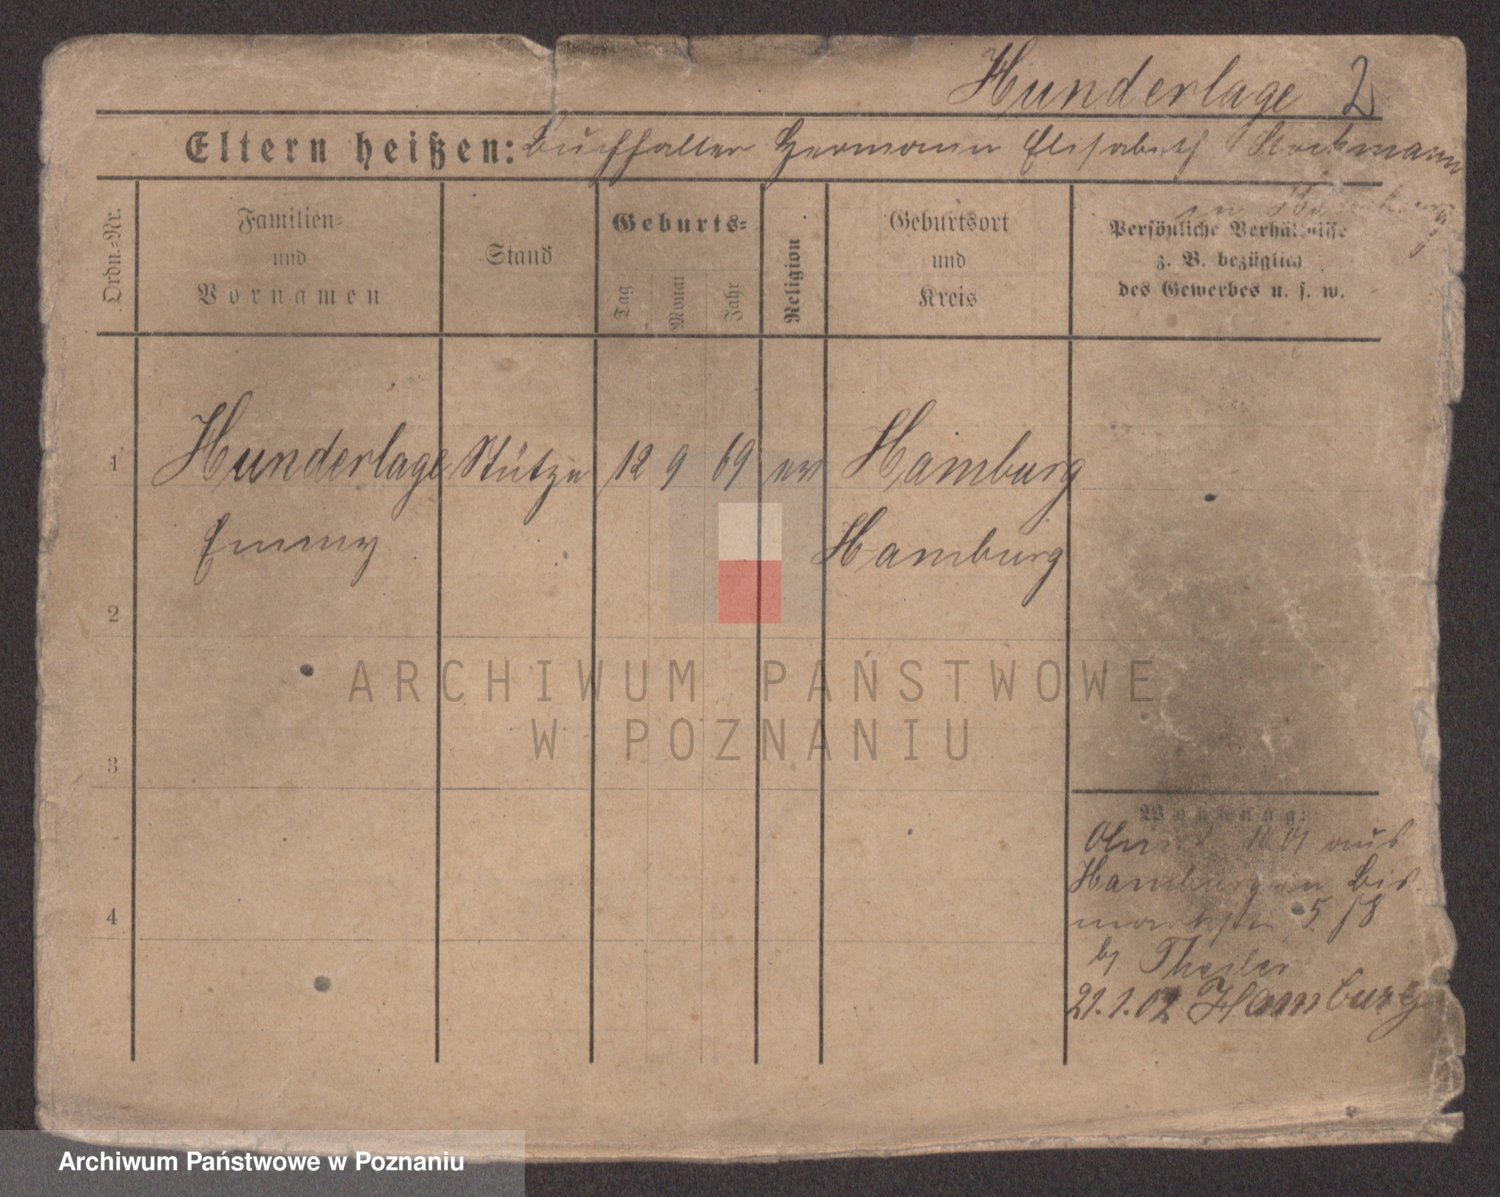 Hunderlage 2
Eltern heißen: Buchhalter Hermann Elisabeth
in
Ordn.=Nr.
Familien=
und
Vornamen
Stand
Geburts=
Tag
Monat
Jahr
Religion
Geburtsort
und
Kreis
Persönliche Verhältnisse
z. B. bezüglich
des Gewerbes u. s. w.
1 Hunderlage Stütze 12 9 69 ev Hamburg
Emmy Hamburg
2
3
4
Wohnung:
01 aus
Hamburg in Bis
5
by Theiler
21.1.02 Hamburg
ARCHIWUM PAŃSTWOWE
W POZNANIU
Archiwum Państwowe w Poznaniu